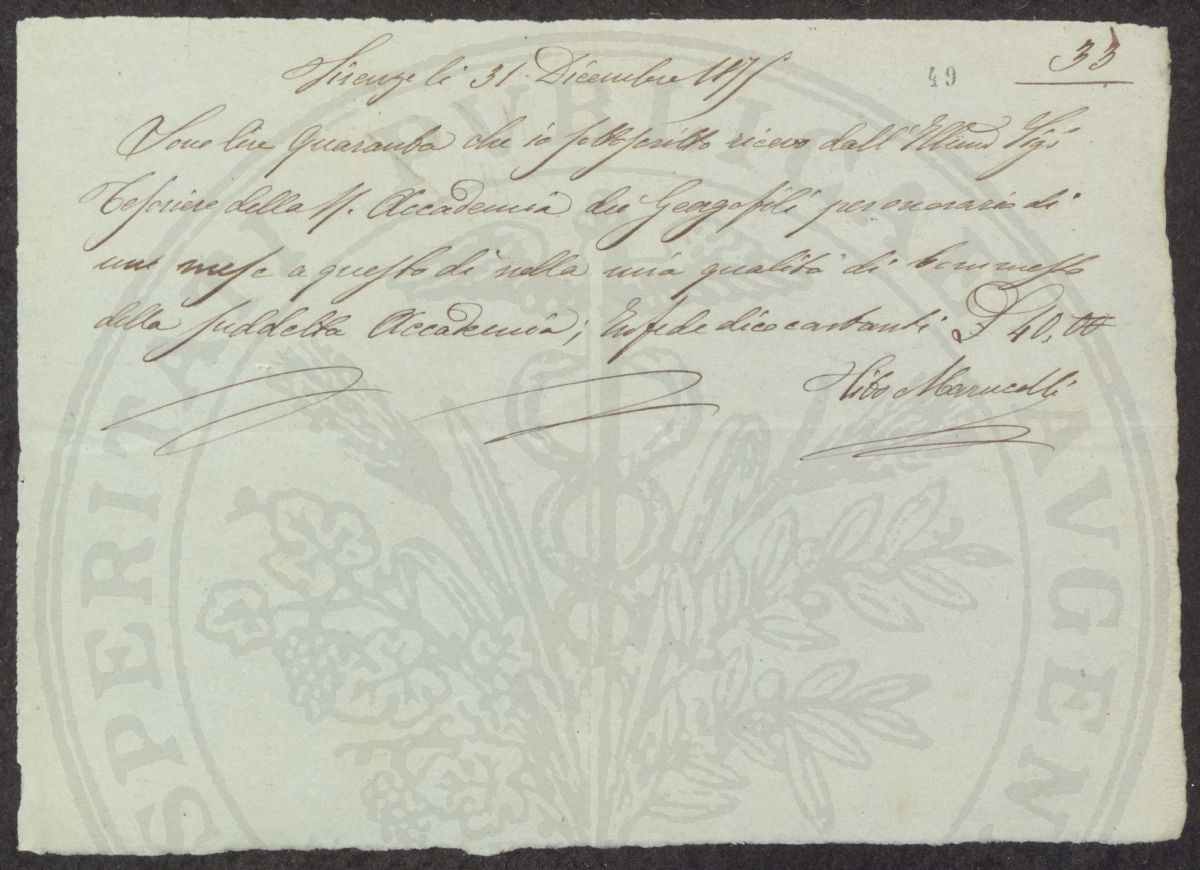 33
49
Firenze li 31 Dicembre 1875
Sono lire Quaranta che io sottoscritto ricevo dall' Illmo Sigr
Tesoriere della R. Accademia dei Georgofili per onorario di
un mese a questo dì nella mia qualità di Commesso
della suddetta Accademia; In fede dico contanti £ 40,00
Marucelli
PROSPERITATI PVBLICAE AVGENDAE